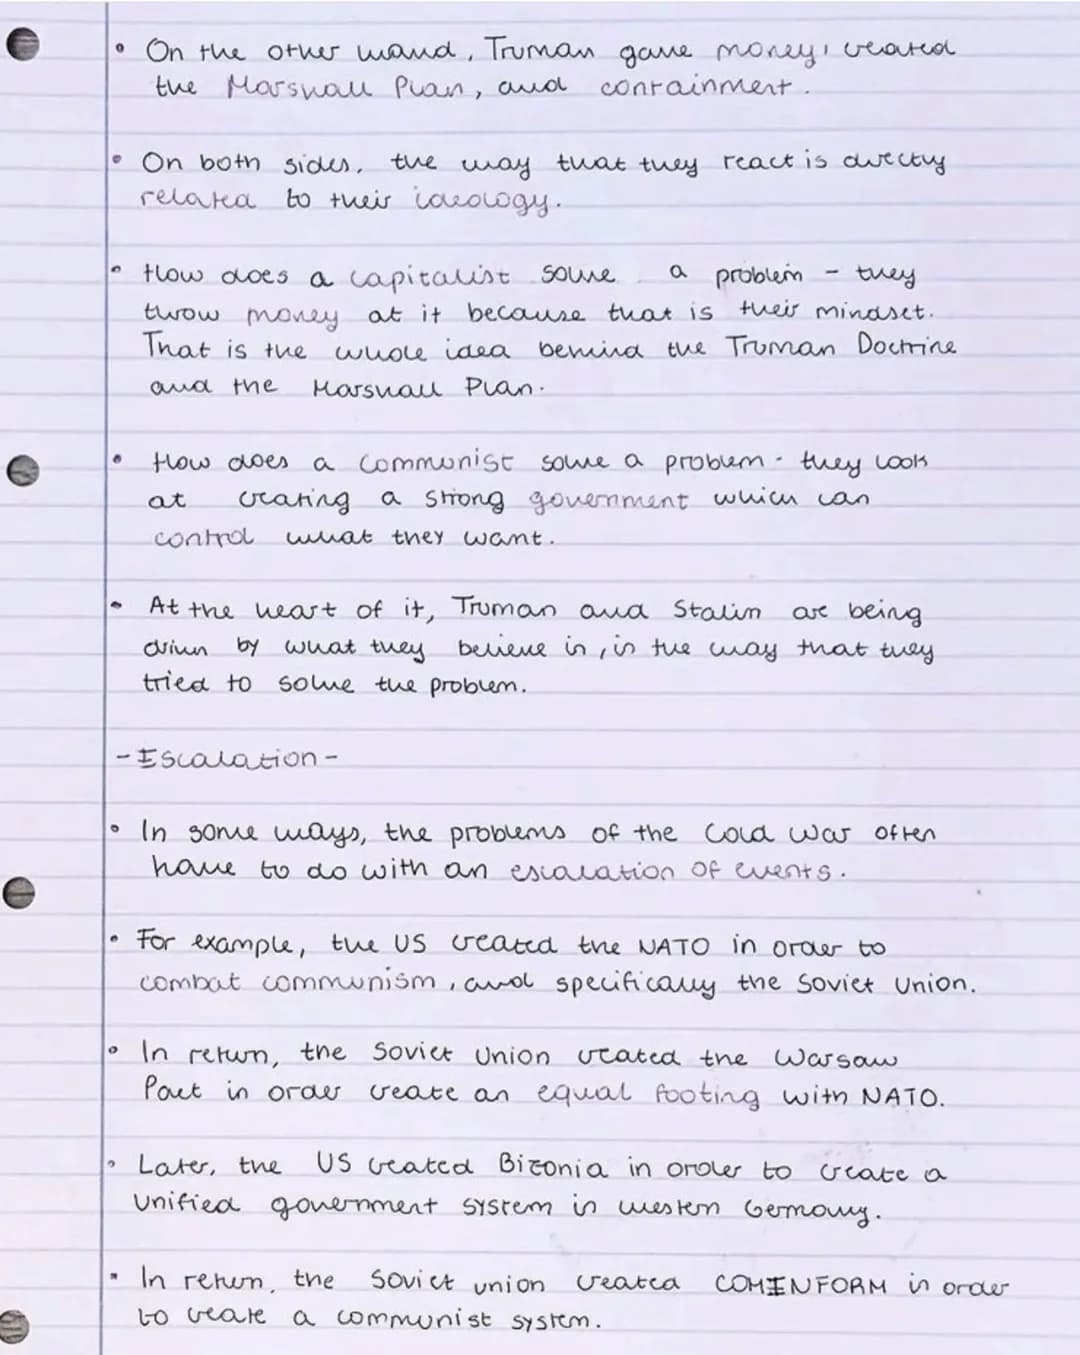 • On the other hand, Truman gave money, created
the Marshall Plan, and containment.
• On both sides, the way that they react is directly
related to their ideology.
• How does a capitalist solve a problem - they
throw money at it because that is their mindset.
That is the whole idea behind the Truman Doctrine
and the Marshall Plan.
• How does a communist solve a problem - they look
at creating a strong government which can
control what they want.
• At the heart of it, Truman and Stalin are being
driven by what they believe in, in the way that they
tried to solve the problem.
- Escalation -
• In some ways, the problems of the Cold War often
have to do with an escalation of events.
• For example, the US created the NATO in order to
combat communism, and specifically the Soviet Union.
• In return, the Soviet Union created the Warsaw
Pact in order create an equal footing with NATO.
• Later, the US created Bizonia in order to create a
unified government system in western Germany.
• In return, the Soviet union created COMINFORM in order
to create a communist system.